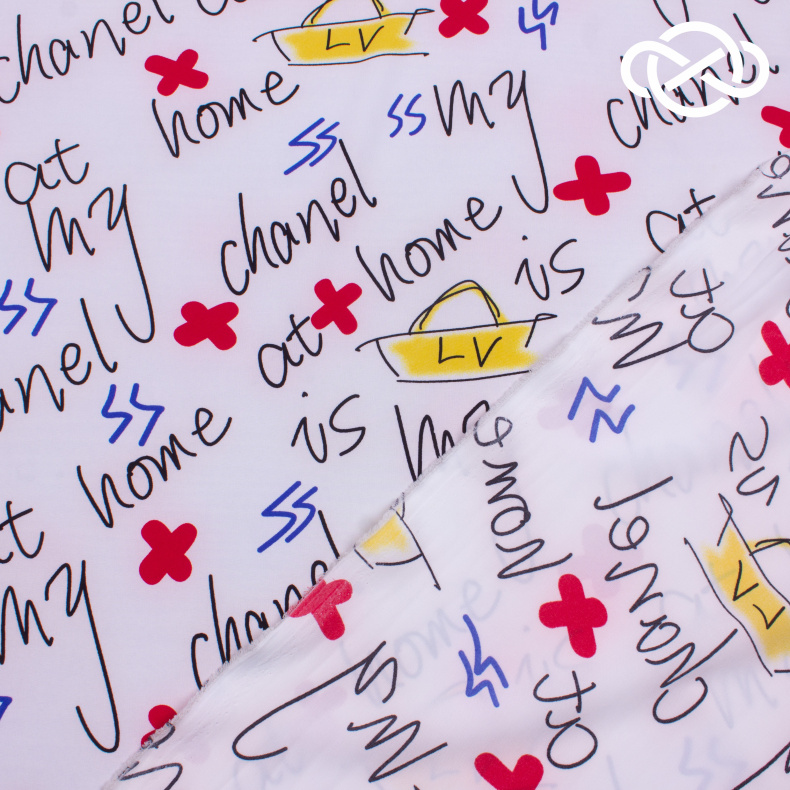 chanel
LV
home
ss
ss my
chanel
at
my
chanel
home
at
is
at
LV
at
my
ss
is my
ss
home
ss
home
chanel
is
LV
my
chanel
my
at